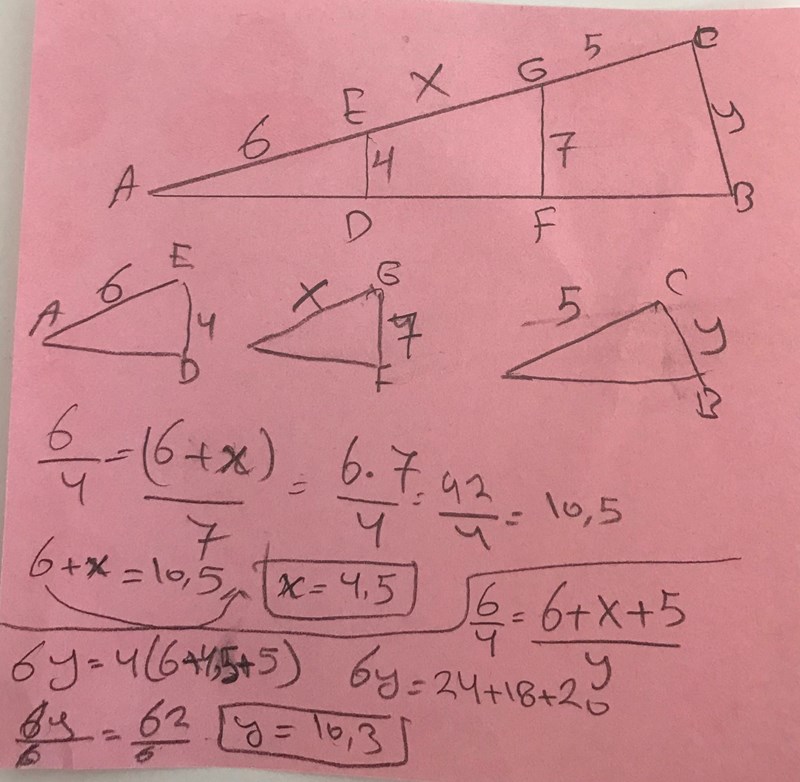 5 C
G
X
E
6 4 7 y
A B
D F
E G C
6 X 5
A 4 7 y
D F B
6/4 = (6+x)/7 = 6·7/4 = 42/4 = 10,5
6+x = 10,5 x = 4,5
6/4 = 6+x+5/y
6y = 4(6+4,5+5) 6y = 24+18+20
6y/6 = 62/6 y = 10,3